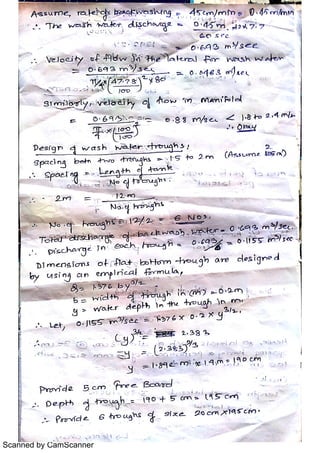 Assume, rate of backwashing = 45cm/min = 0.45m/min
∴ The wash water discharge = 0.45m 12×7.7
60 sec
= 0.693 m³/sec
∴ Velocity of flow in the lateral for wash water
= 0.693 m³/sec = 0.0483 m/sec
π/4 × (47.78/100)² × 80
Similarly, velocity of flow in manifold
= 0.693 = 0.88 m/sec < 1.8 to 2.4 m/s
π/4 × (100/100)² ∴ Okay
Design of wash water troughs,
spacing betn two troughs = 1.5 to 2m (Assume 2m)
∴ Spacing = Length of tank
No of troughs
∴ 2m = 12m
No. of troughs
∴ No. of troughs = 12/2 = 6 Nos.
Total discharge of backwash water = 0.693 m³/sec.
∴ Discharge in each trough = 0.693/6 = 0.1155 m³/sec
Dimensions of flat bottom trough are designed
by using an empirical formula,
Q = 1.376 b y^3/2
b = width of trough in (m) = 0.2m
y = water depth in the trough in m.
∴ Let, 0.1155 m³/sec = 1.376 × 0.2 × y^3/2
∴ (y)^3/2 = 2.383
= y = (2.383)^2/3
y = 1.9m = 190 cm
Provide 5cm free Board
∴ Depth of trough = 190 + 5 cm = 195 cm
∴ Provide 6 troughs of size 20cm × 195cm.
Scanned by CamScanner